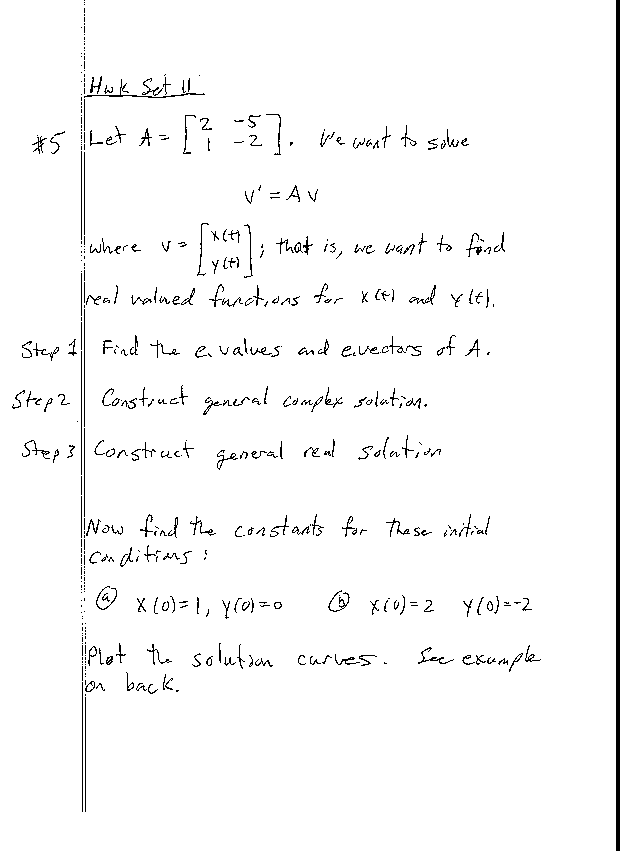 Hwk Set 11
#5 Let A = [2 -5
1 -2]. We want to solve
v' = A v
where v = [x(t)
y(t)]; that is, we want to find
real valued functions for x(t) and y(t).
Step 1 Find the e.values and e.vectors of A.
Step 2 Construct general complex solution.
Step 3 Construct general real solution
Now find the constants for these initial
conditions:
(a) x(0)=1, y(0)=0 (b) x(0)=2 y(0)=-2
Plot the solution curves. See example
on back.